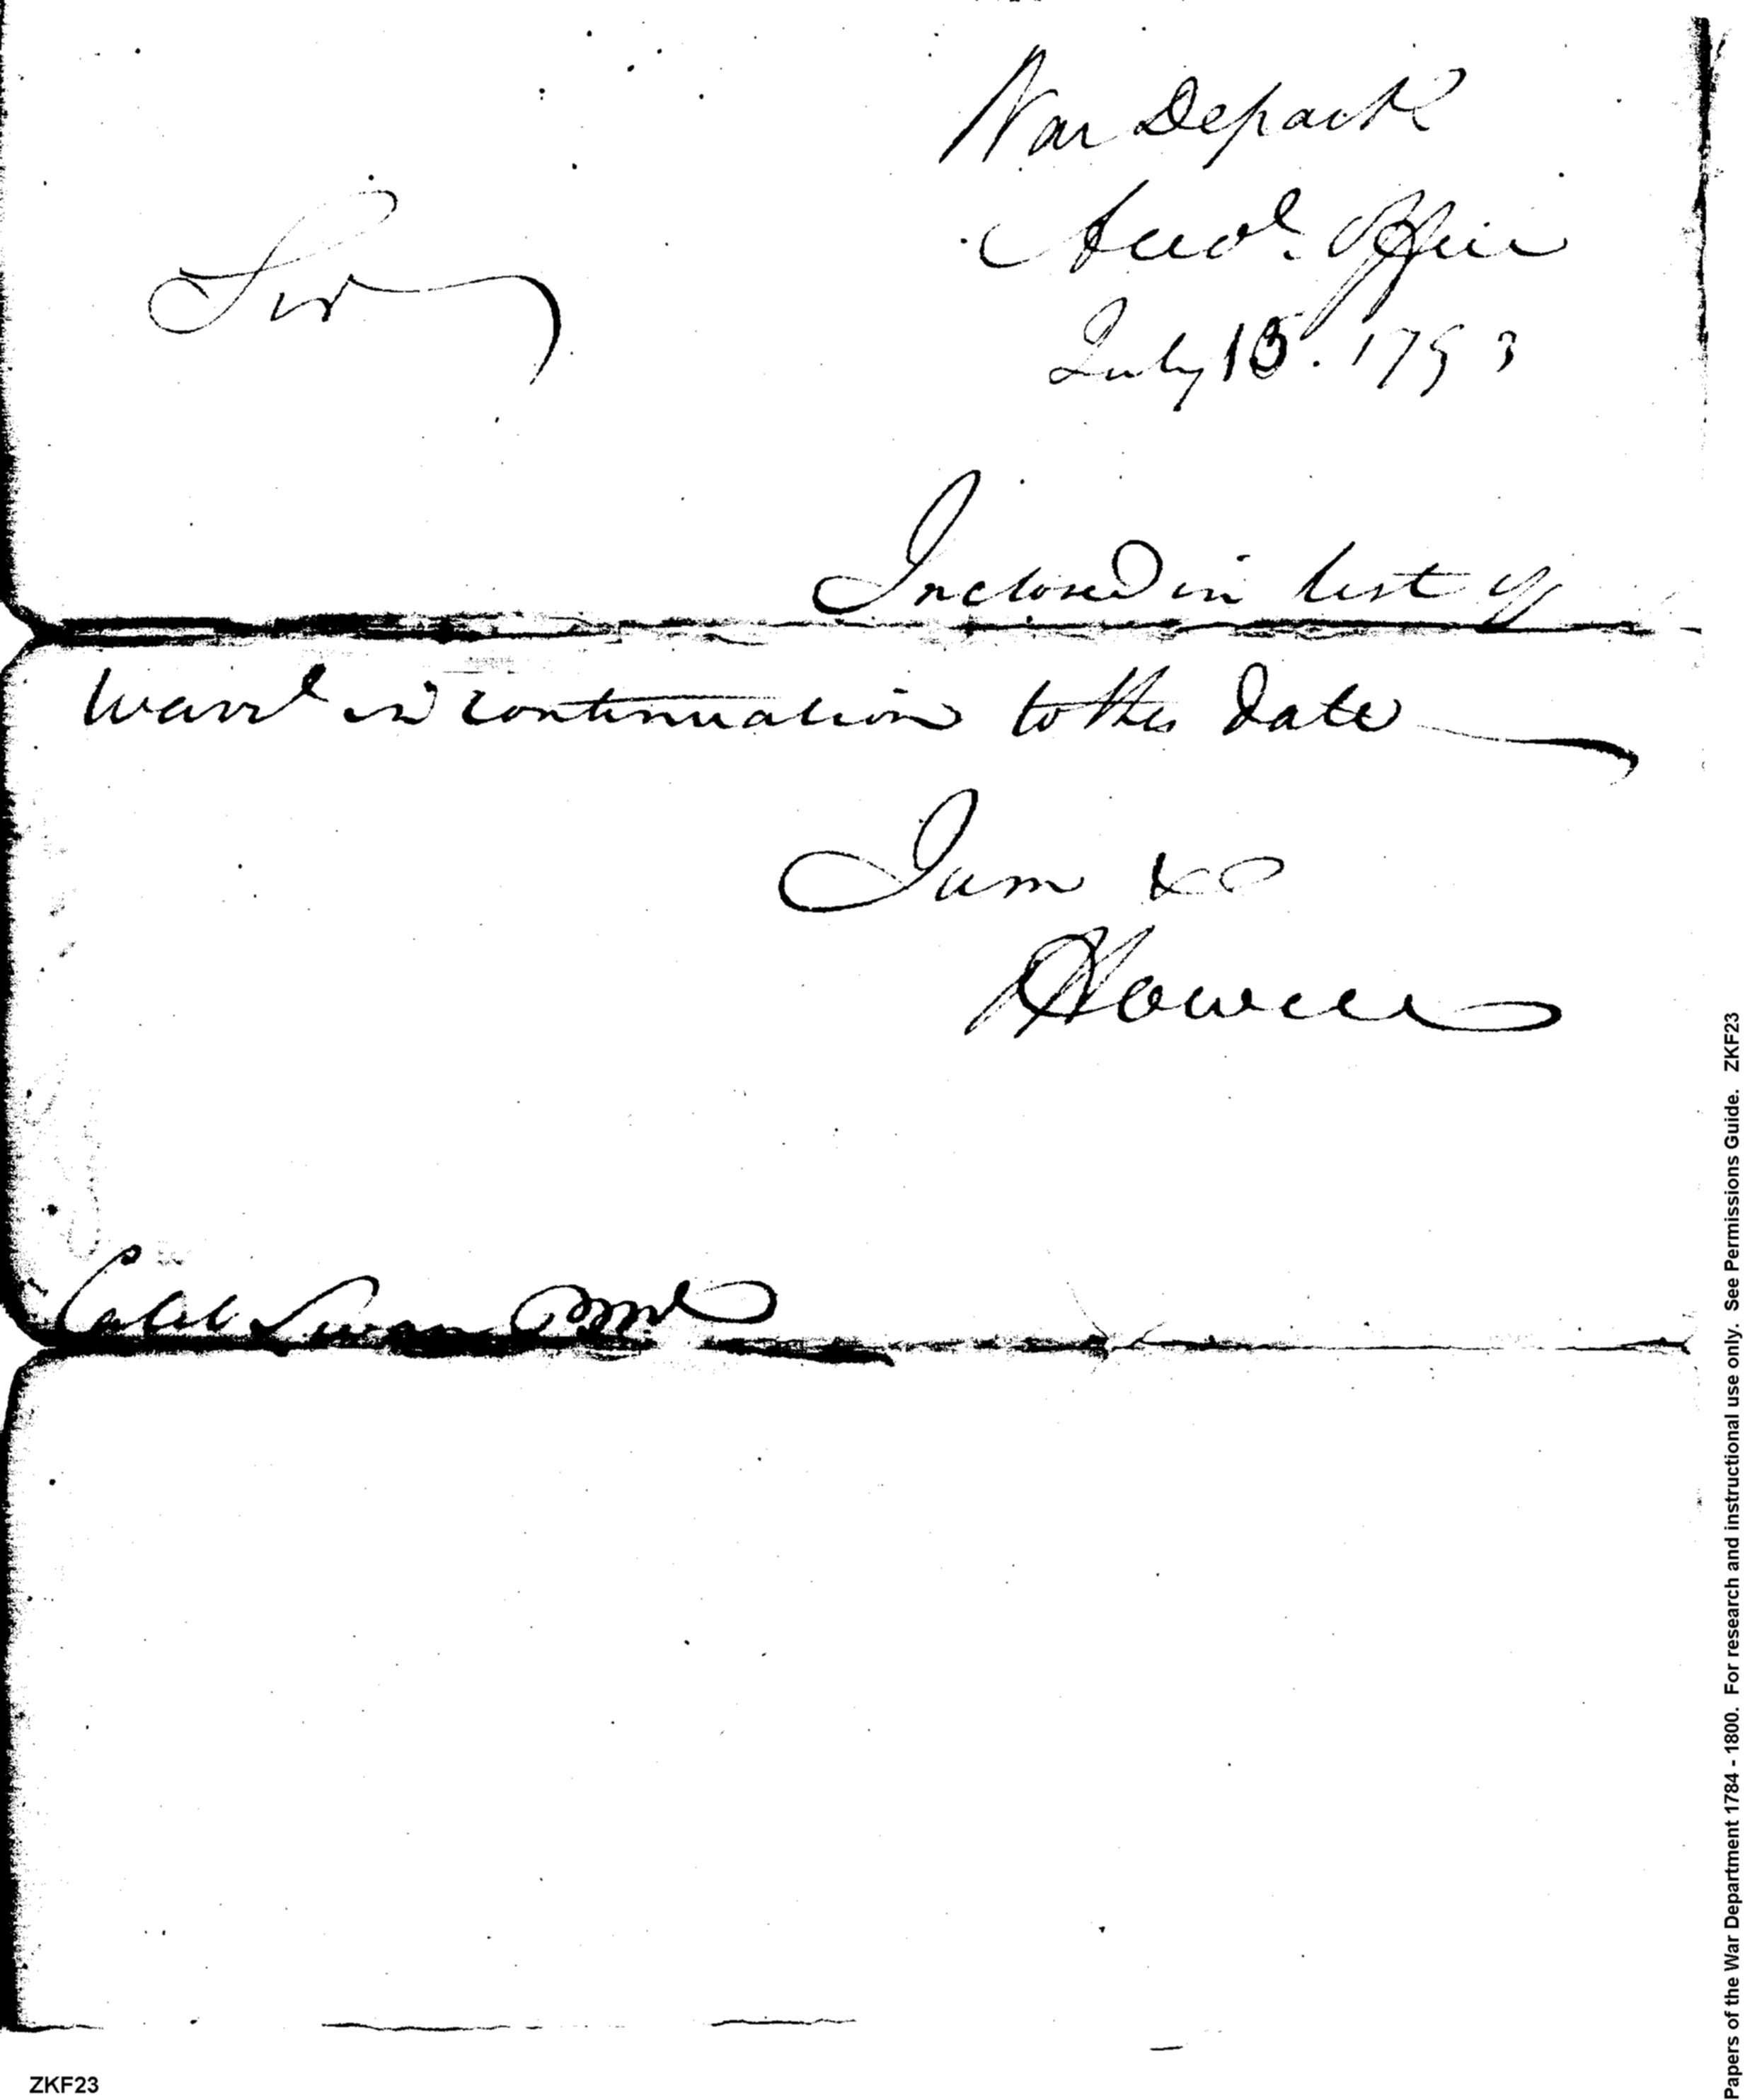 War Depart
Acco^t. Office
Sir
July 15. 1793
Inclosed in list of
in continuation to this date
I am &c
J Howell
Caleb Swan
Papers of the War Department 1784 - 1800. For research and instructional use only. See Permissions Guide. ZKF23
ZKF23